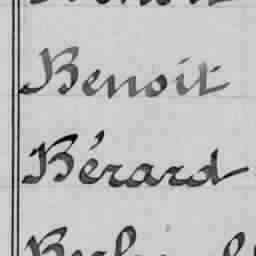 Benoit
Bérard